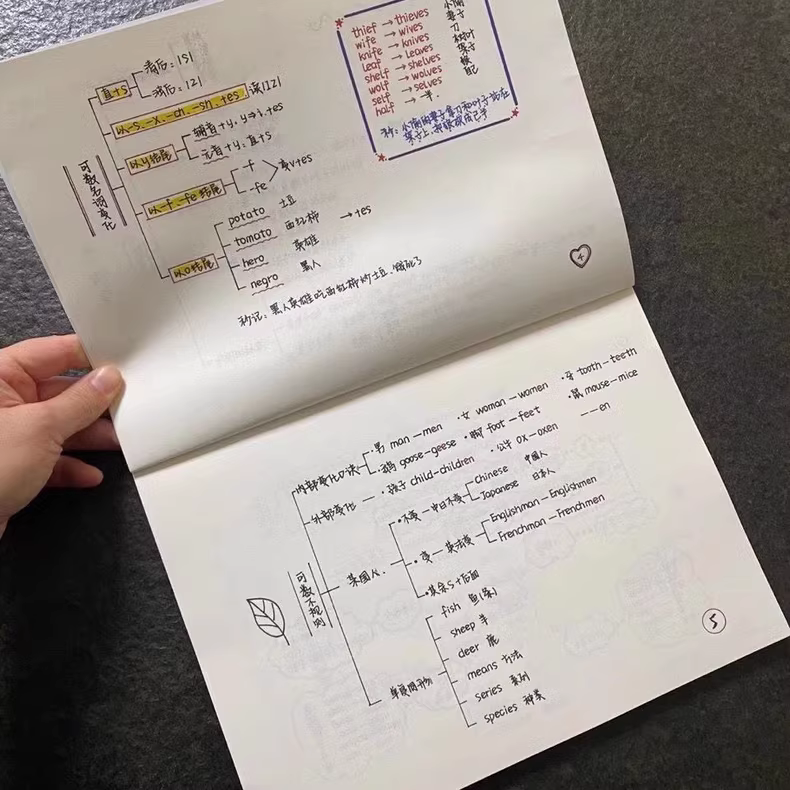 可数名词变化
直+s
清后: |s|
浊后: |z|
以-s. -x. -ch. -sh. +es 读|iz|
以y结尾
辅音+y, y→i. +es
元音+y, 直+s
以-f. -fe结尾
-f
-fe
变v+es
以o结尾
potato 土豆
tomato 西红柿 →+es
hero 英雄
negro 黑人
秒记: 黑人英雄吃西红柿炒土豆
thief → thieves 小偷
wife → wives 妻子
knife → knives 刀
leaf → leaves 树叶
shelf → shelves 架子
wolf → wolves 狼
self → selves
half → 一半.
4
可数不规则
内部变化口诀
·男 man — men ·女 woman — women ·牙 tooth — teeth
·鹅 goose — geese ·脚 foot — feet ·鼠 mouse — mice
外部变化 — ·孩子 child — children ·公牛 ox — oxen — en
某国人.
·不变 — 中日不变
Chinese 中国人
Japanese 日本人
·变 — 英法变
Englishman — Englishmen
Frenchman — Frenchmen
·其余s+后面
单复同形
fish 鱼(条)
sheep 羊
deer 鹿
means 方法
series 系列
species 种类
5